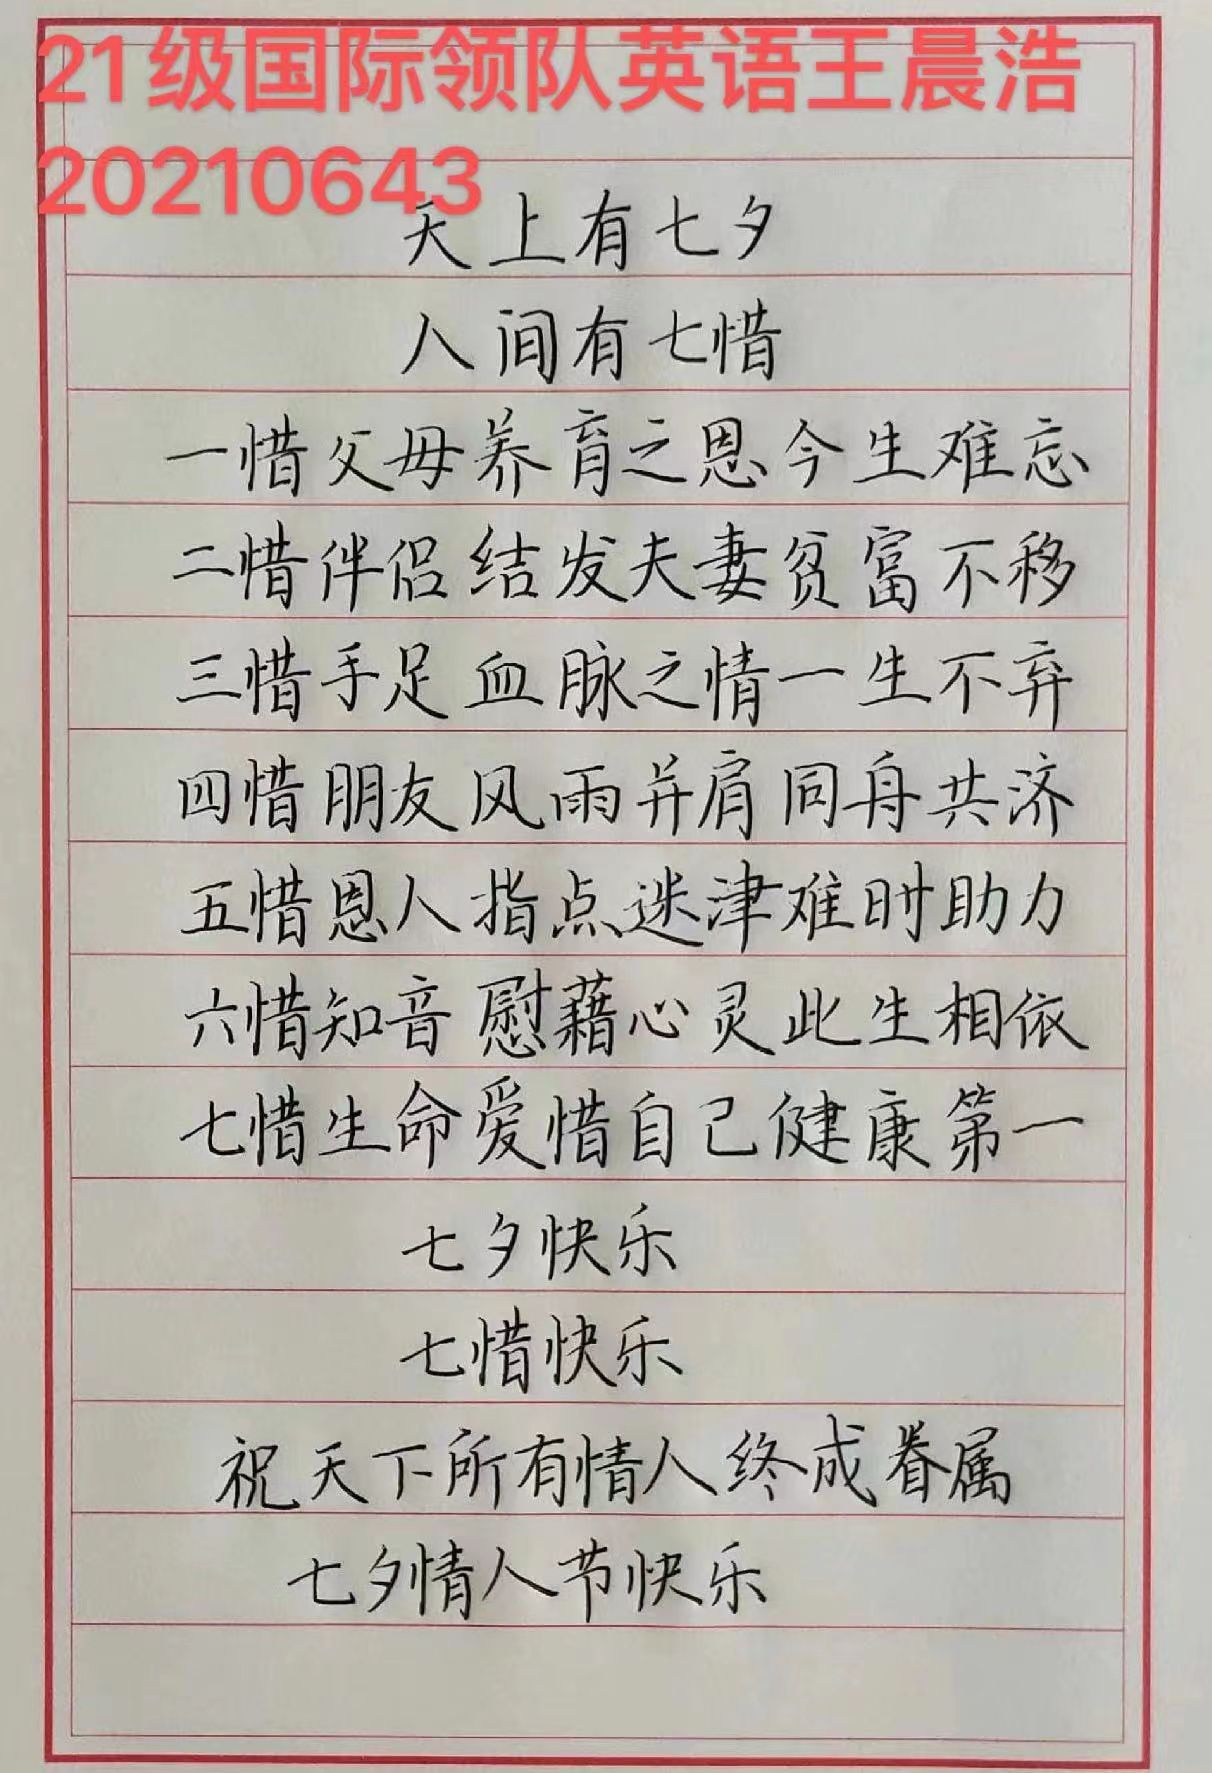 21级国际领队英语王晨浩
20210643
天上有七夕
人间有七惜
一惜父母养育之恩今生难忘
二惜伴侣结发夫妻贫富不移
三惜手足血脉之情一生不弃
四惜朋友风雨并肩同舟共济
五惜恩人指点迷津难时助力
六惜知音慰藉心灵此生相依
七惜生命爱惜自己健康第一
七夕快乐
七惜快乐
祝天下所有情人终成眷属
七夕情人节快乐